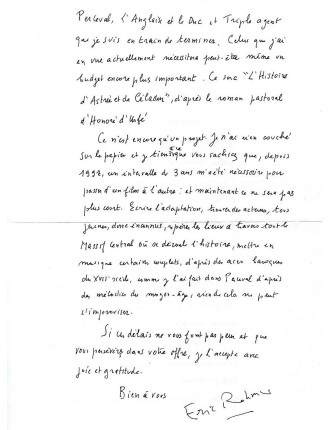 Perceval, L'Anglaise et le Duc et Triple agent
que je suis en train de terminer. Celui que j'ai
en vue actuellement nécessitera peut-être même un
budget encore plus important. Ce sera "L'Histoire
d'Astrée et de Céladon", d'après le roman pastoral
d'Honoré d'Urfé
Ce n'est encore qu'un projet. Je n'ai rien couché
sur le papier et je tiens à ce que vous sachiez que, depuis
1998, un intervalle de 3 ans m'a été nécessaire pour
passer d'un film à l'autre : et maintenant ce ne sera pas
plus court. Ecrire l'adaptation, trouver des acteurs, tous
jeunes, donc inconnus, repérer les lieux à travers tout le
Massif central où se déroule l'histoire, mettre en
musique certains couplets, d'après des airs baroques
du XVIIe siècle, comme je l'ai fait dans Perceval d'après
des mélodies du moyen-âge, rien de cela ne peut
s'improviser.
Si ces délais ne vous font pas peur et que
vous persévérez dans votre offre, je l'accepte avec
joie et gratitude.
Bien à vous
Eric Rohmer